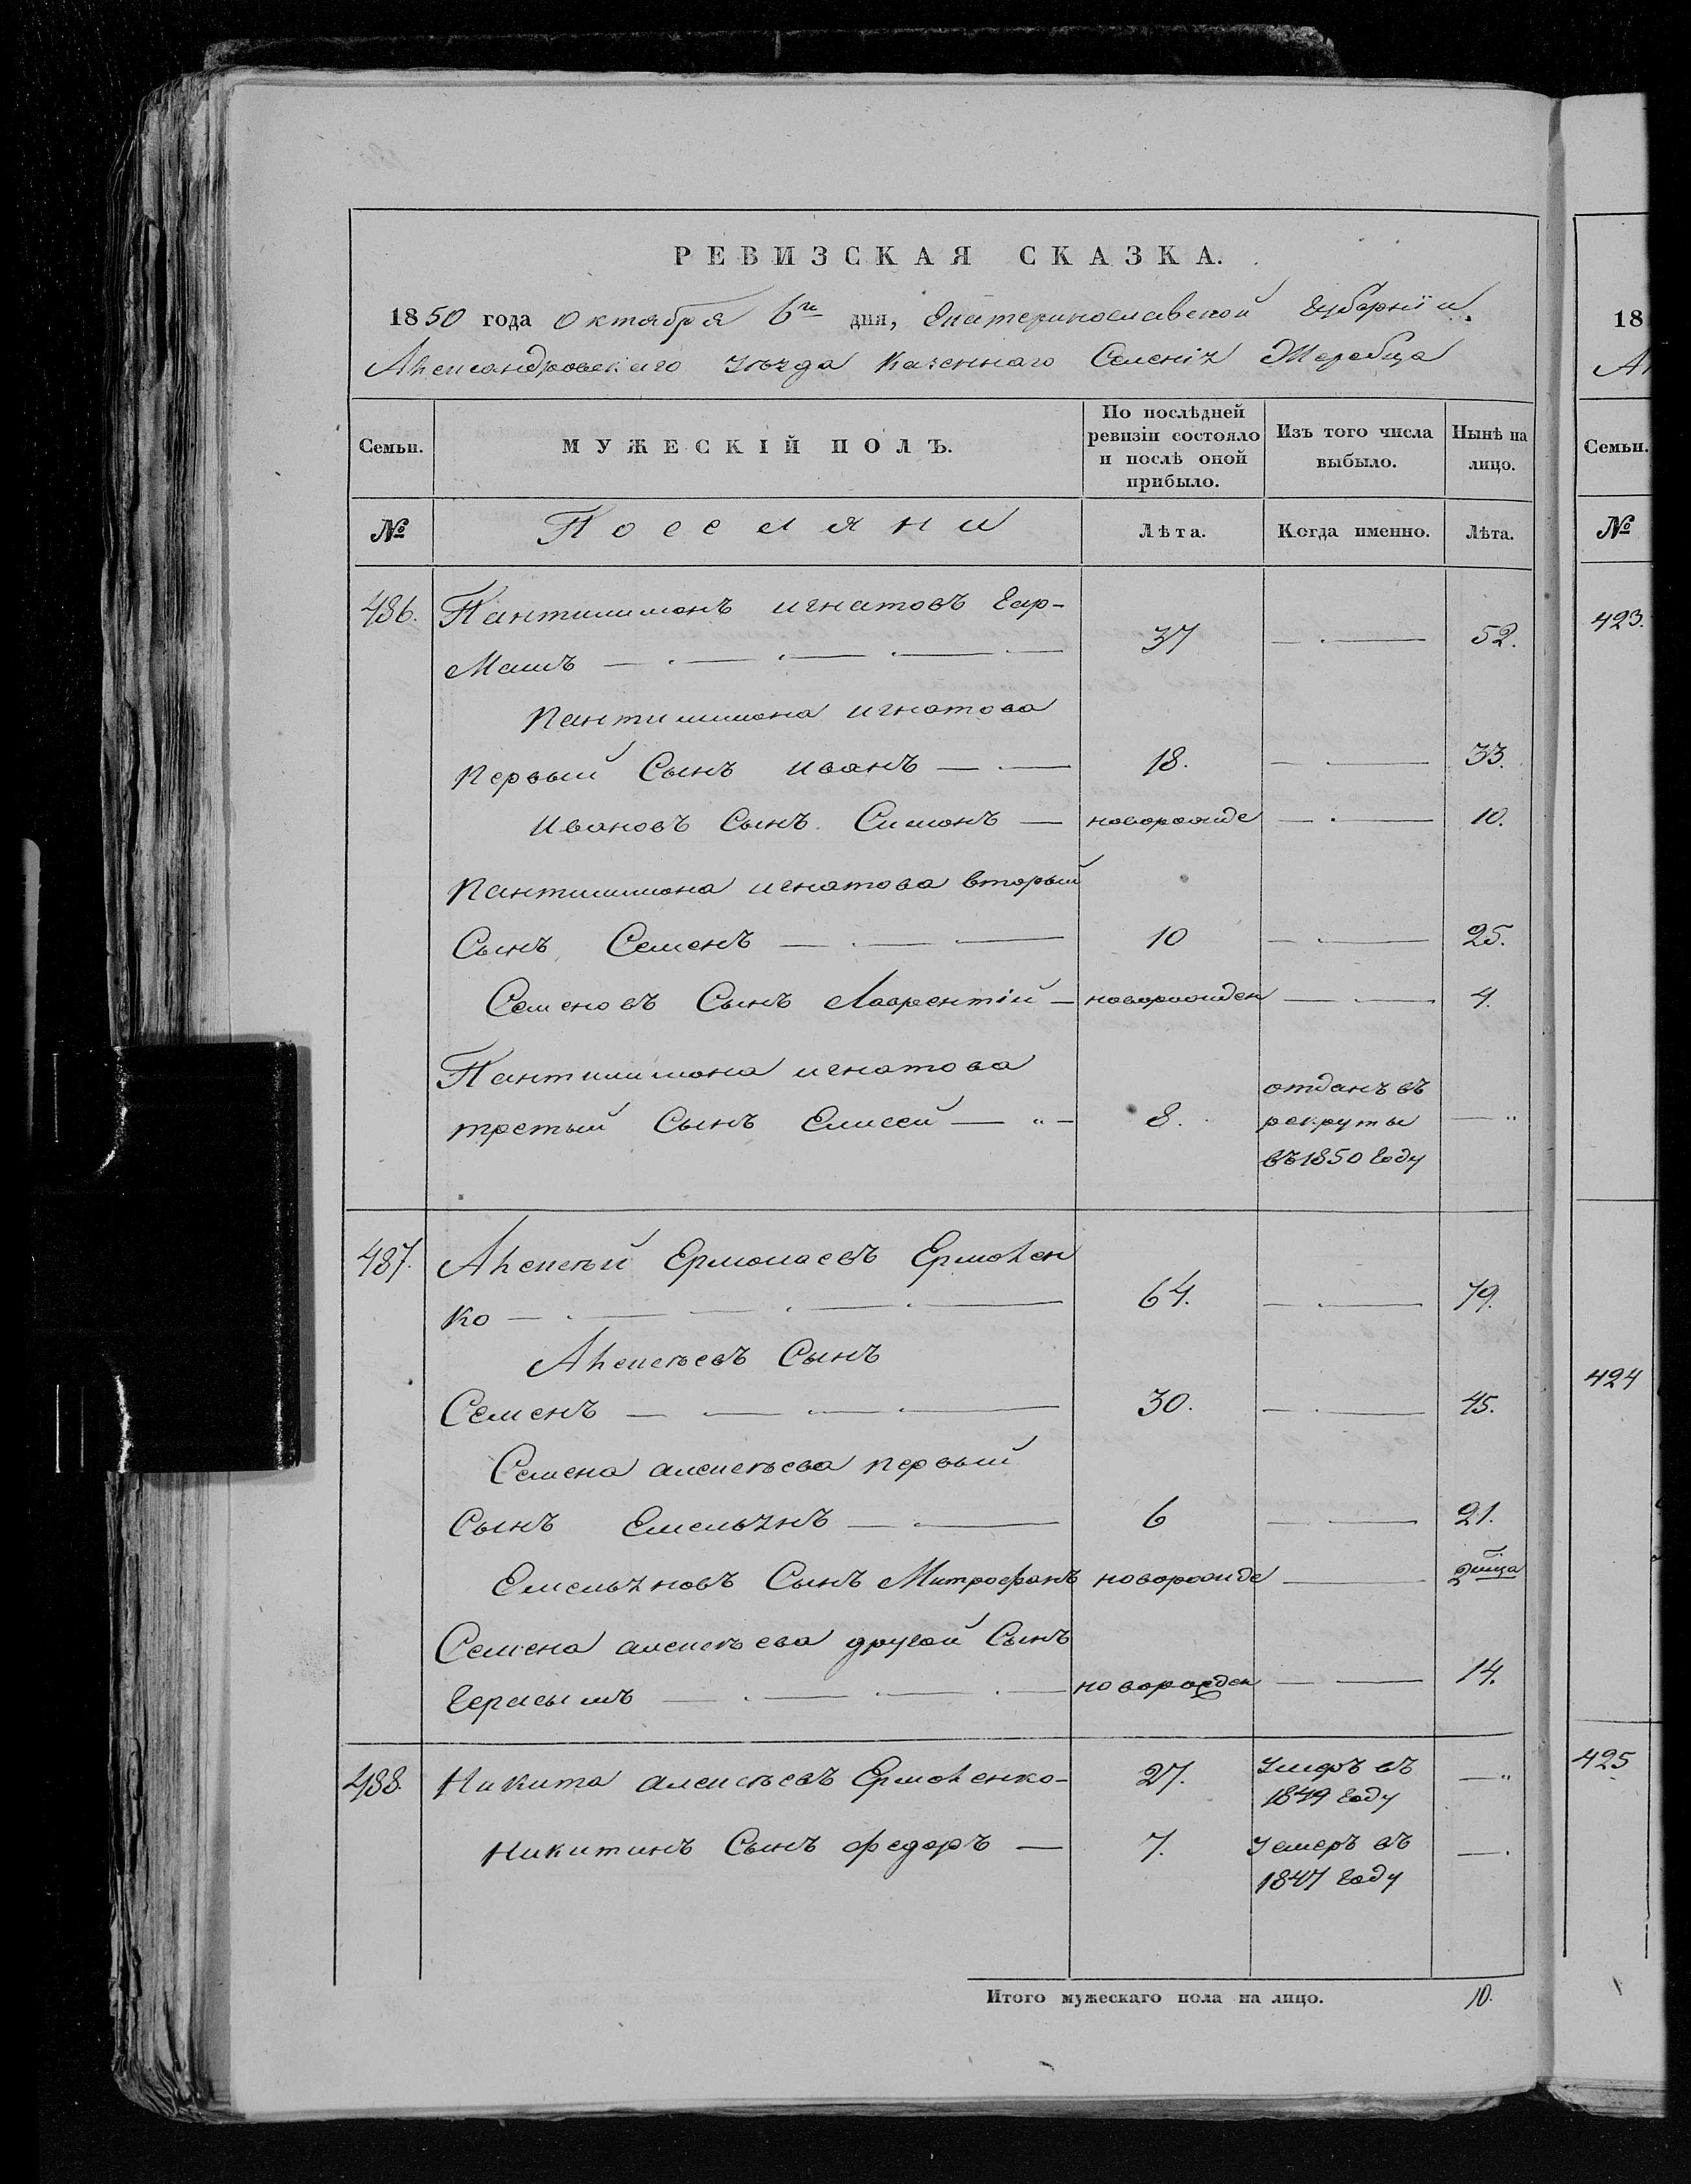 РЕВИЗСКАЯ СКАЗКА.
1850 года Октября 6го дня, Екатеринославской Губернiи
Александровскаго уезда Казеннаго Селенiя Жеребца
Семьи.
МУЖЕСКIЙ ПОЛЪ.
По послѣдней ревизiи состояло и послѣ оной прибыло.
Изъ того числа выбыло.
Нынѣ на лицо.
№
Поселяни
Лѣта.
Когда именно.
Лѣта.
486. Пантилимонъ игнатовъ Гар-
машъ — 37 — 52.
Пантилимона игнатова
первый Сынъ иванъ — 18. — 33.
Ивановъ Сынъ Симонъ — новорожде — 10.
Пантилимона игнатова вторый
Сынъ Семенъ — 10 — 25.
Семеновъ Сынъ Лаврентiй — новорожден — 4.
Пантилимона игнатова
третый Сынъ Елисей — 8. отданъ въ рекруты въ 1850 Году —
487. Алексѣй Ермолаевъ Ермолен
ко — 64. — 79.
Алексѣевъ Сынъ
Семенъ — 30. — 45.
Семена алексѣева первый
Сынъ Емельянъ — 6 — 21.
Емельяновъ Сынъ Митрофанъ новорожде —
Семена алексѣева другой Сынъ
Герасымъ — новорожден — 14.
488. Никита алексѣевъ Ермоленко - 27. Умеръ въ 1849 Году —
Никитинъ Сынъ федоръ — 7. Умеръ въ 1847 Году —
Итого мужескаго пола на лицо. 10.
18
Семьи.
№
423.
424
425